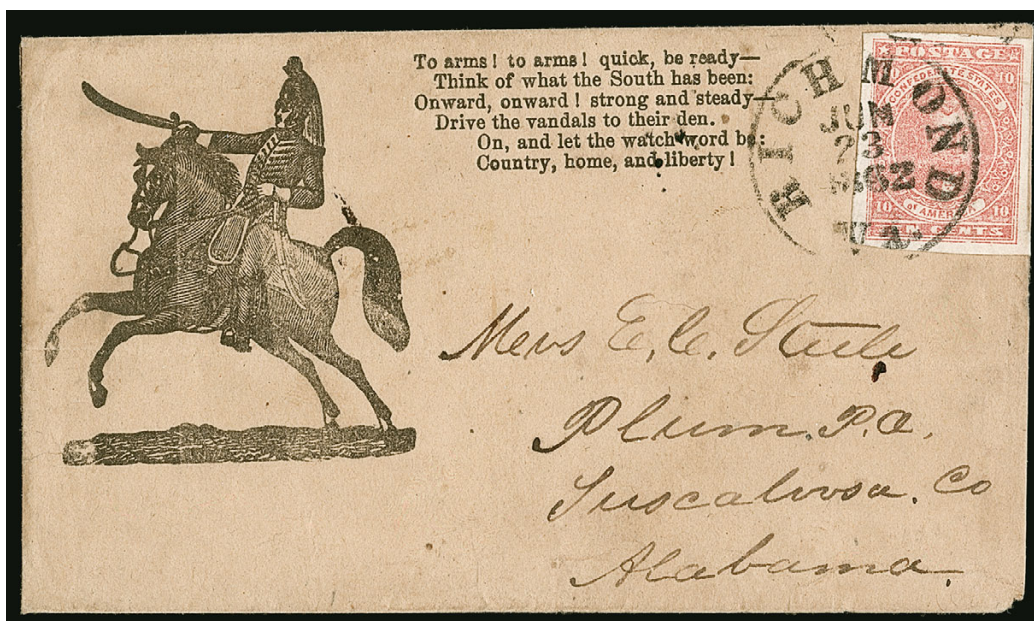 To arms! to arms! quick, be ready—
Think of what the South has been:
Onward, onward! strong and steady—
Drive the vandals to their den.
On, and let the watch word be:
Country, home, and liberty!
RICHMOND
JUN
23
1862
VA.
POSTAGE
10 10
CONFEDERATE STATES
of AMERICA
10 10
TEN CENTS
Mrs E. C. Steele
Plum. P.O.
Tuscaloosa. Co
Alabama.